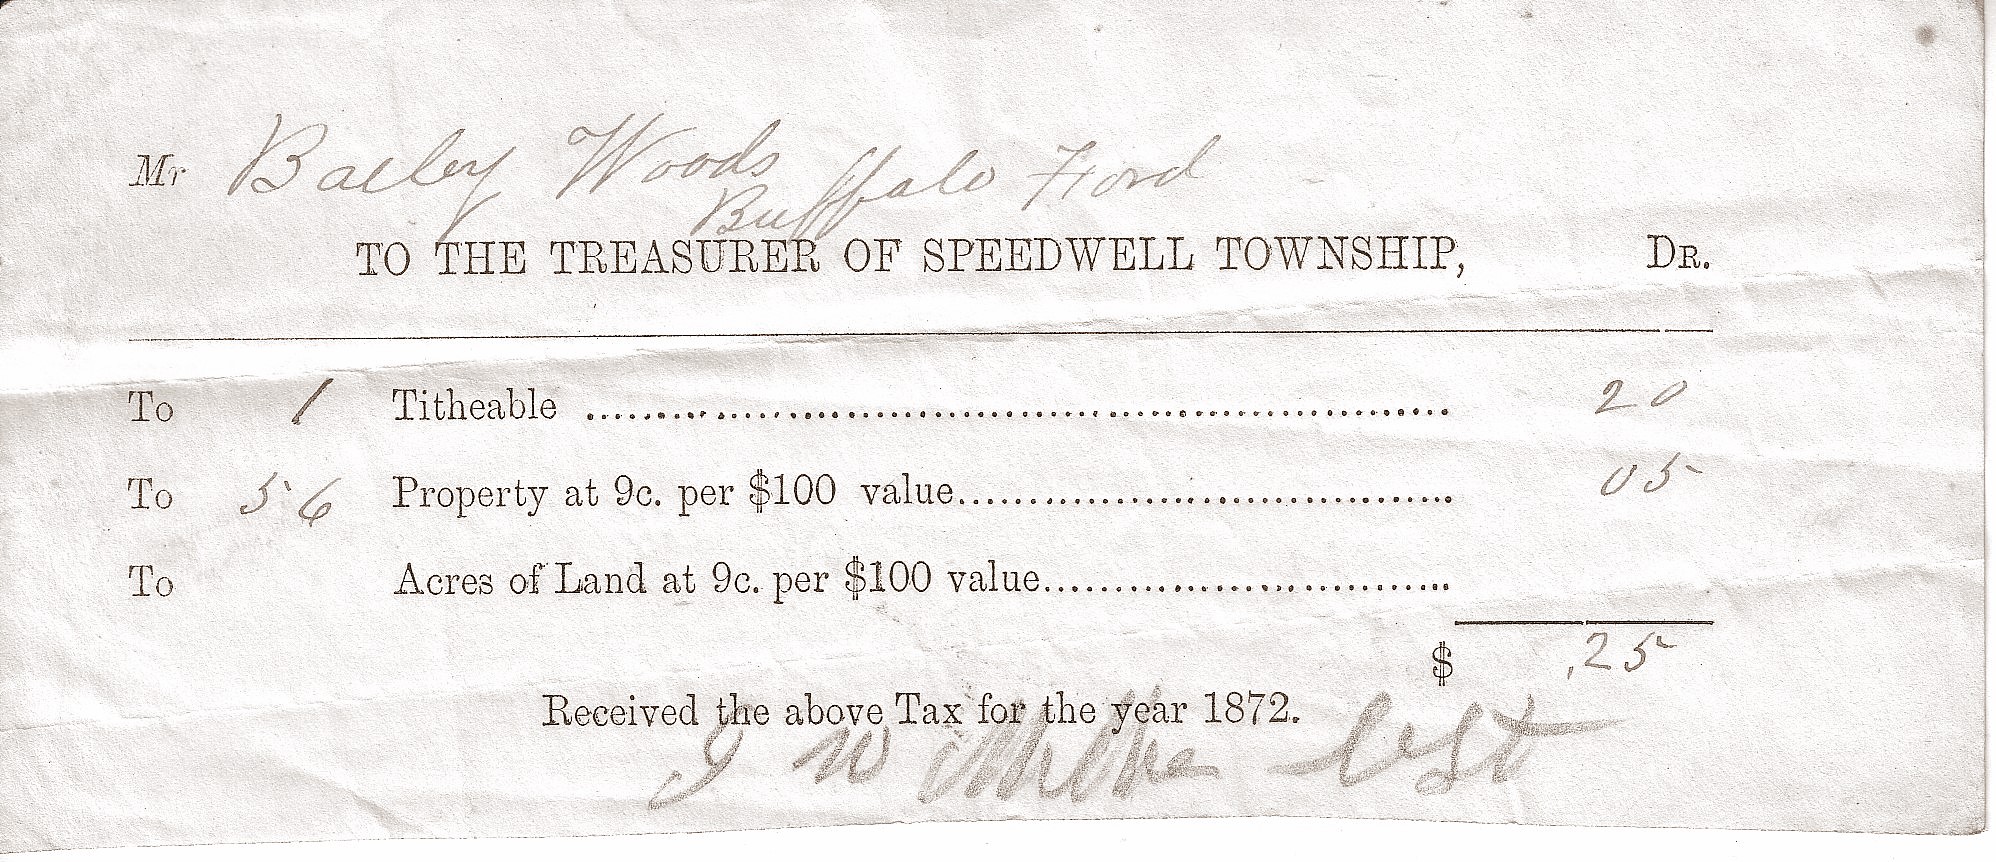 Mr Bailey Woods
Buffalo Ford
TO THE TREASURER OF SPEEDWELL TOWNSHIP, DR.
To 1 Titheable 20
To 56 Property at 9c. per $100 value 05
To Acres of Land at 9c. per $100 value
$ .25
Received the above Tax for the year 1872.